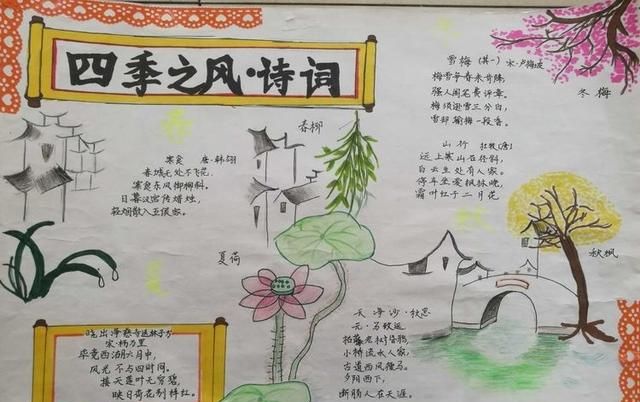 四季之风·诗词
春柳
寒食 唐·韩翃
春城无处不飞花,
寒食东风御柳斜。
日暮汉宫传蜡烛,
轻烟散入五侯家。
雪梅(其一) 宋·卢梅坡
梅雪争春未肯降,
骚人阁笔费评章。
梅须逊雪三分白,
雪却输梅一段香。
冬梅
山行 杜牧(唐)
远上寒山石径斜,
白云生处有人家。
停车坐爱枫林晚,
霜叶红于二月花
秋枫
夏荷
晓出净慈寺送林子方
宋·杨万里
毕竟西湖六月中,
风光不与四时同。
接天莲叶无穷碧,
映日荷花别样红。
天净沙·秋思
元·马致远
枯藤老树昏鸦,
小桥流水人家,
古道西风瘦马。
夕阳西下,
断肠人在天涯。